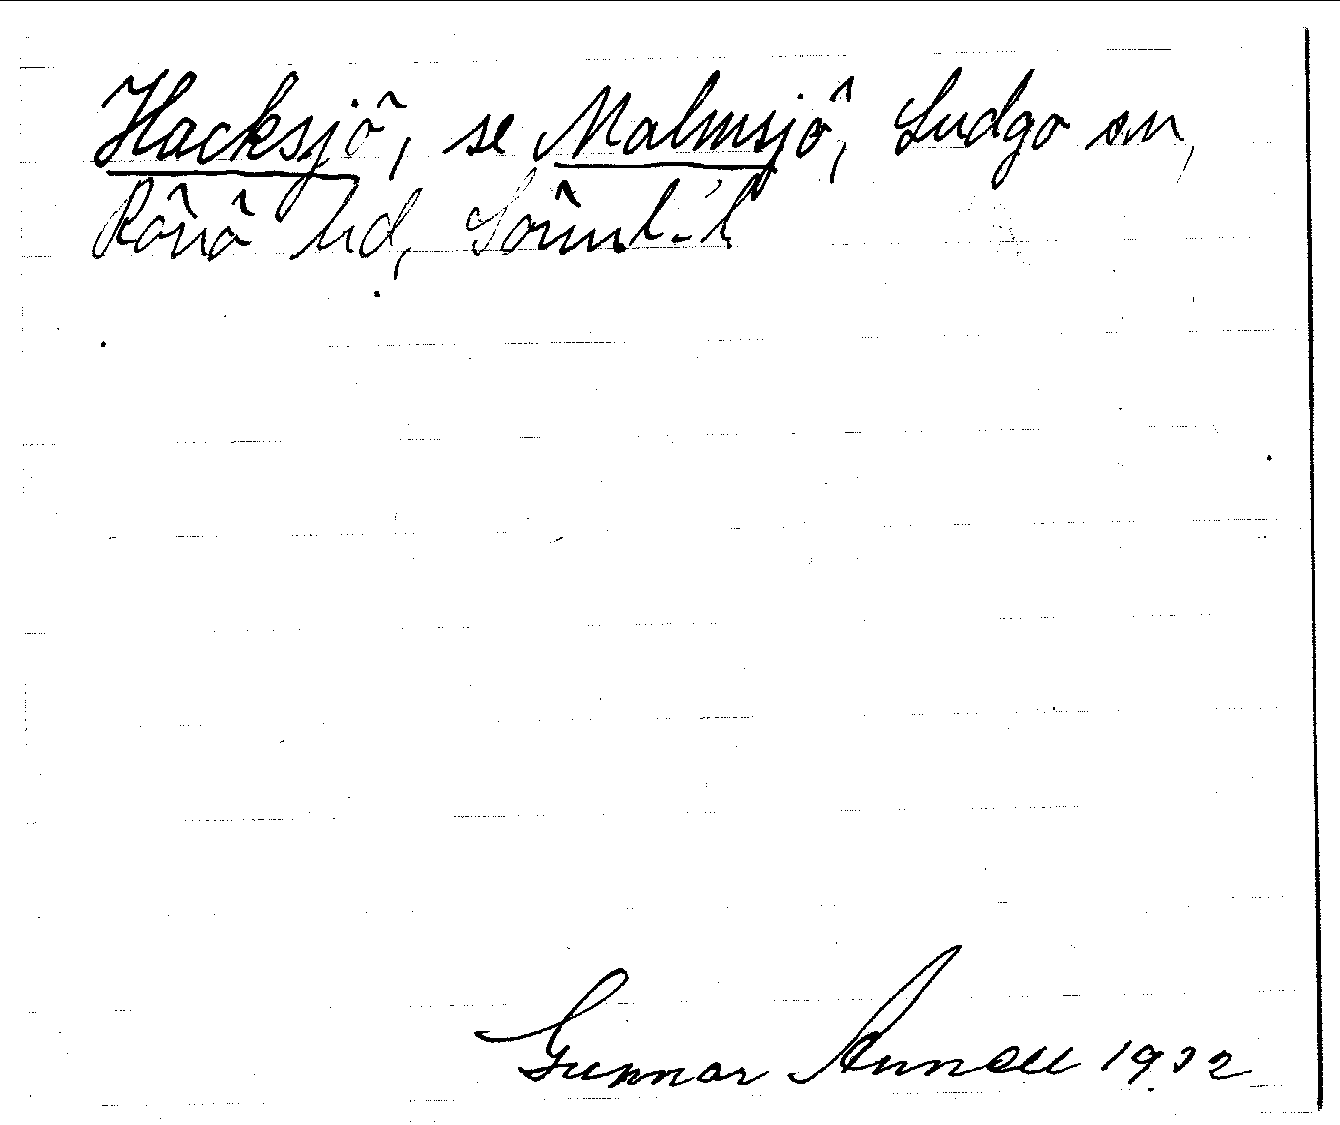 Hacksjö, se Malmsjö, Ludgo sn,
Rönö hd, Sörml. l.
Gunnar Annell 1932